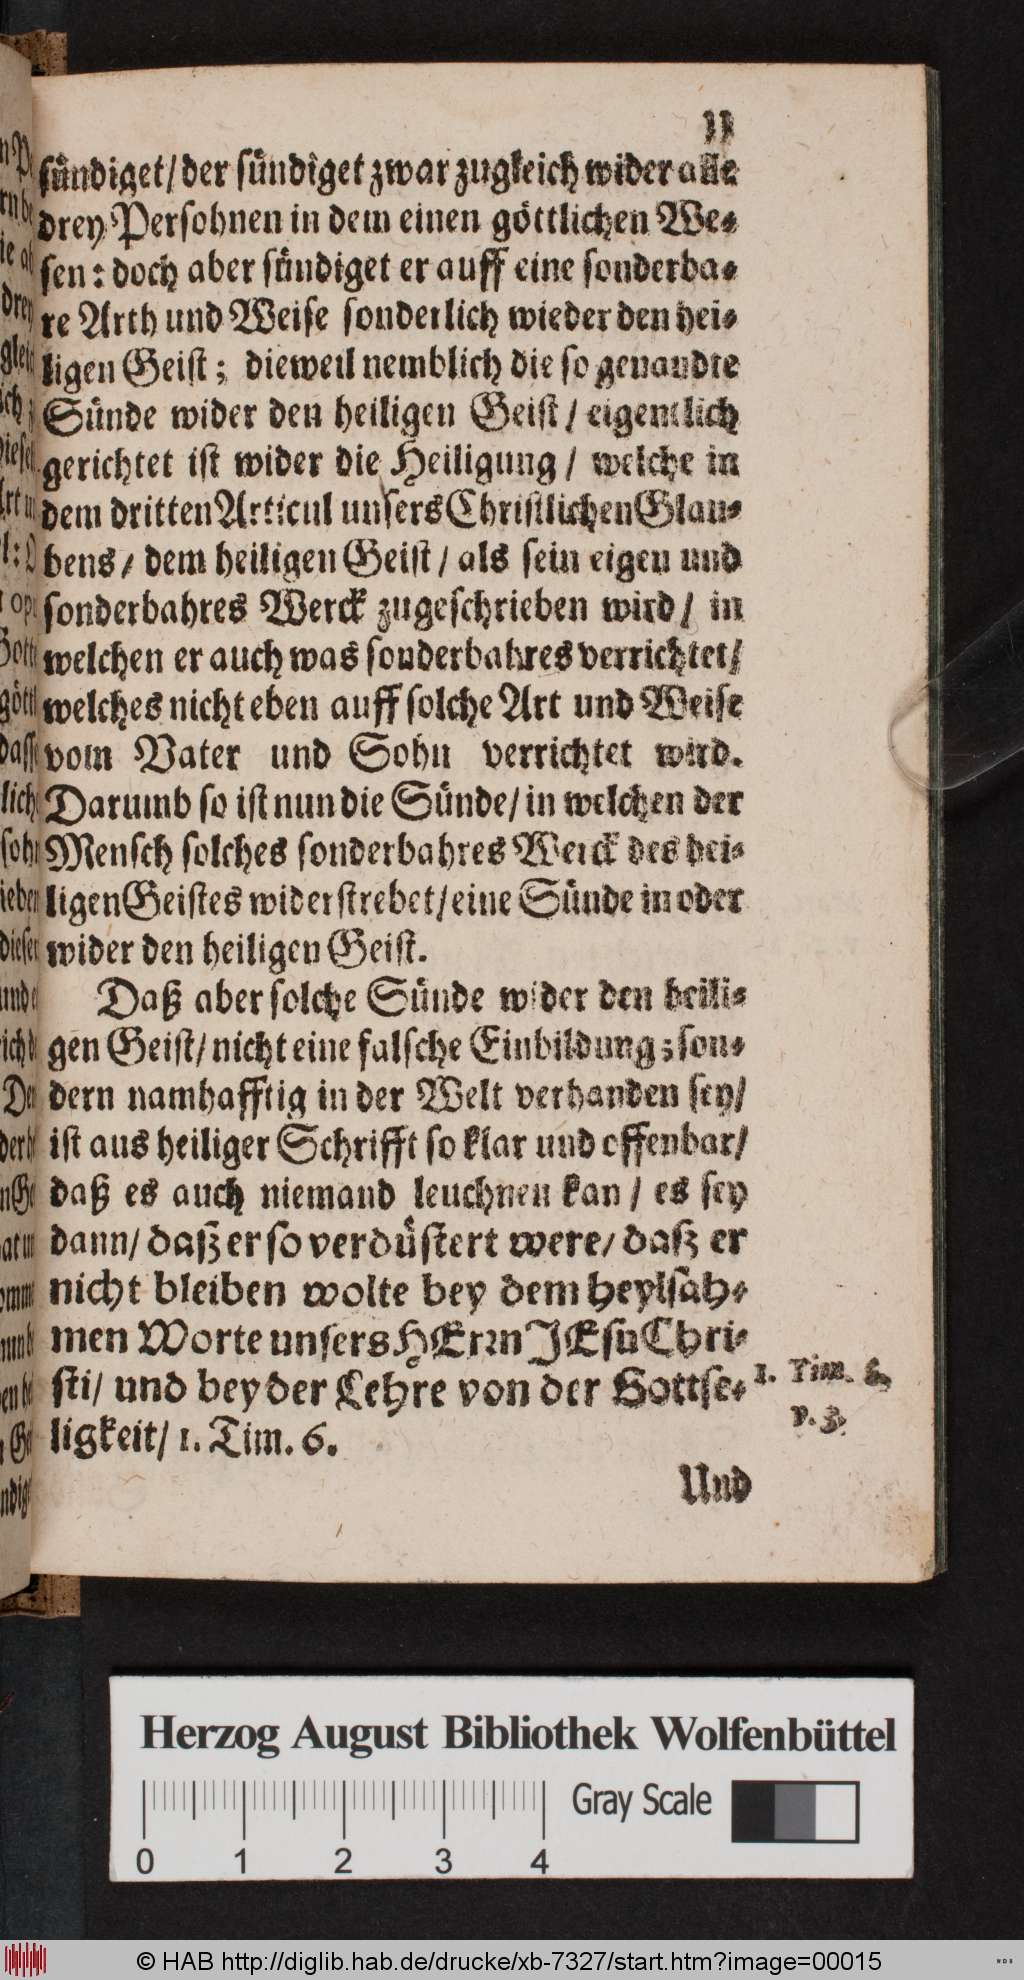 11
sündiget/ der sündiget zwar zugleich wider alle
drey Persohnen in dem einen göttlichen We-
sen: doch aber sündiget er auff eine sonderba-
re Arth und Weise sonderlich wieder den hei-
ligen Geist; dieweil nemblich die so genandte
Sünde wider den heiligen Geist/ eigentlich
gerichtet ist wider die Heiligung/ welche in
dem dritten Articul unsers Christlichen Glau-
bens/ dem heiligen Geist/ als sein eigen und
sonderbahres Werck zugeschrieben wird/ in
welchen er auch was sonderbahres verrichtet/
welches nicht eben auff solche Art und Weise
vom Vater und Sohn verrichtet wird.
Darumb so ist nun die Sünde/ in welchen der
Mensch solches sonderbahres Werck des hei-
ligen Geistes widerstrebet/ eine Sünde in oder
wider den heiligen Geist.
Daß aber solche Sünde wider den heili-
gen Geist/ nicht eine falsche Einbildung; son-
dern namhafftig in der Welt verhanden sey/
ist aus heiliger Schrifft so klar und offenbar/
daß es auch niemand leuchnen kan/ es sey
dann/ daß er so verdüstert were/ daß er
nicht bleiben wolte bey dem heylsah-
men Worte unsers HErrn JEsu Chri-
sti/ und bey der Lehre von der Gottse-
ligkeit/ 1. Tim. 6.
1. Tim. 6.
v. 3.
Und
Herzog August Bibliothek Wolfenbüttel
Gray Scale
0 1 2 3 4
© HAB http://diglib.hab.de/drucke/xb-7327/start.htm?image=00015